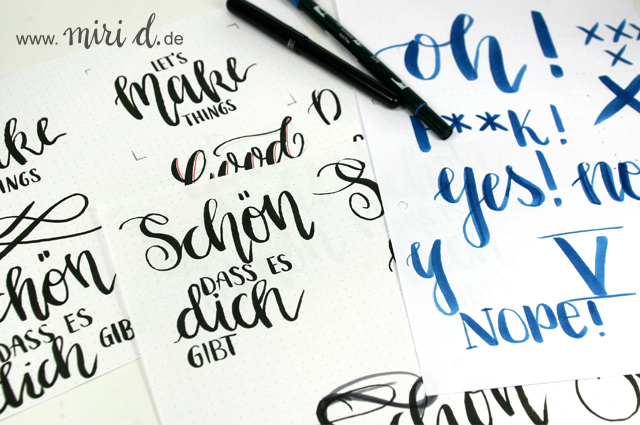 www. miri d. de
LET'S
make
THINGS
Good
Schön
DASS ES
dich
GIBT
ake
INGS
chön
DASS ES
dich GIBT
oh!
F**k!
yes! no
y V
NOPE!
Schön